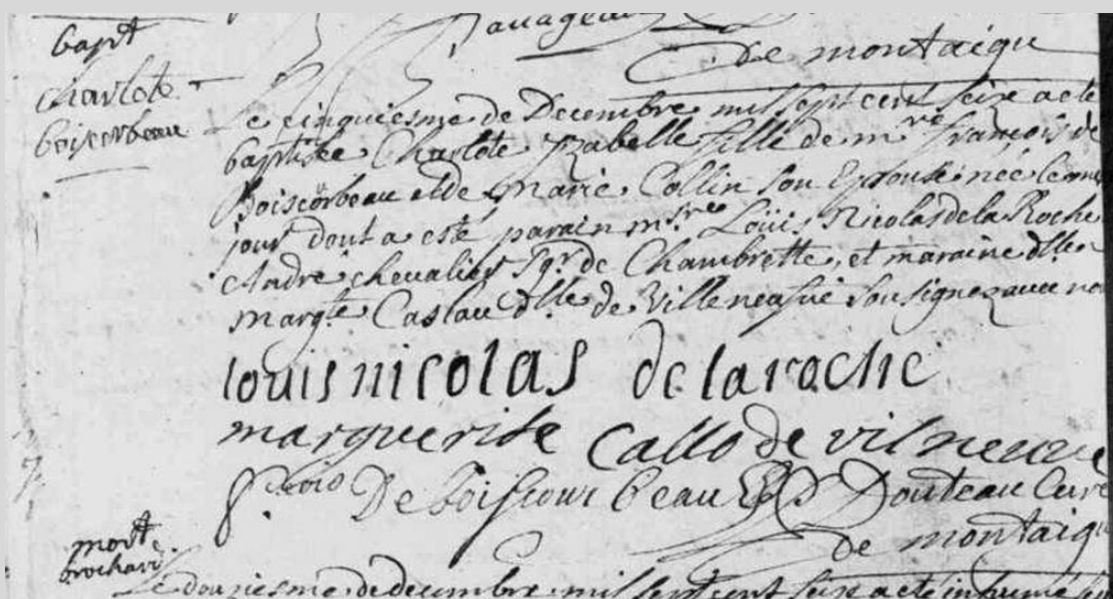 de montaigu
bapt
charlote
boiscorbeau
Le cinquiesme de Decembre mil sept cent seize a eté
baptisée Charlote Izabelle fille de mre françois de
Boiscorbeau et de Marie Collin son Epouse née le
jour dont a esté parain Loüis Nicolas de la Roche
André chevalier Sgr. de Chambrette, et maraine dlle
margte. dlle de Villeneufue sousignez auec
louis nicolas de la roche
marguerite Callo de vilneuve
De boiscour beau Douteau Curé
de montaigu
mort
Le douziesme de decembre mil sept cent seize a eté inhumé